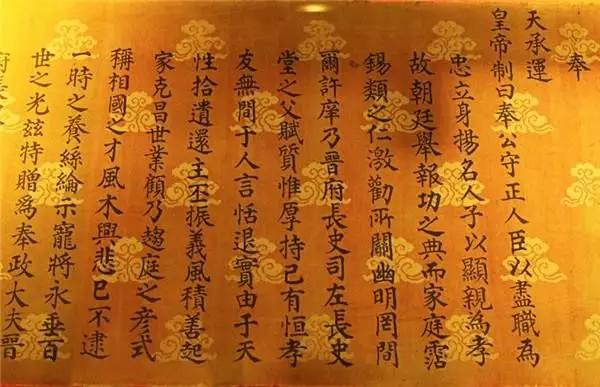 奉
天承運
皇帝制曰奉公守正人臣以盡職為
忠立身揚名人子以顯親為孝
故朝廷舉報功之典而家庭霑
錫類之仁激勸所關幽明罔間
爾許庠乃晉府長史司左長史
堂之父賦質惟厚持己有恒孝
友無間于人言恬退實由于天
性拾遺還主丕振義風積善起
家克昌世業顧乃趨庭之彥式
稱相國之才風木興悲已不逮
一時之養絲綸示寵將永垂百
世之光茲特贈為奉政大夫晉
府長